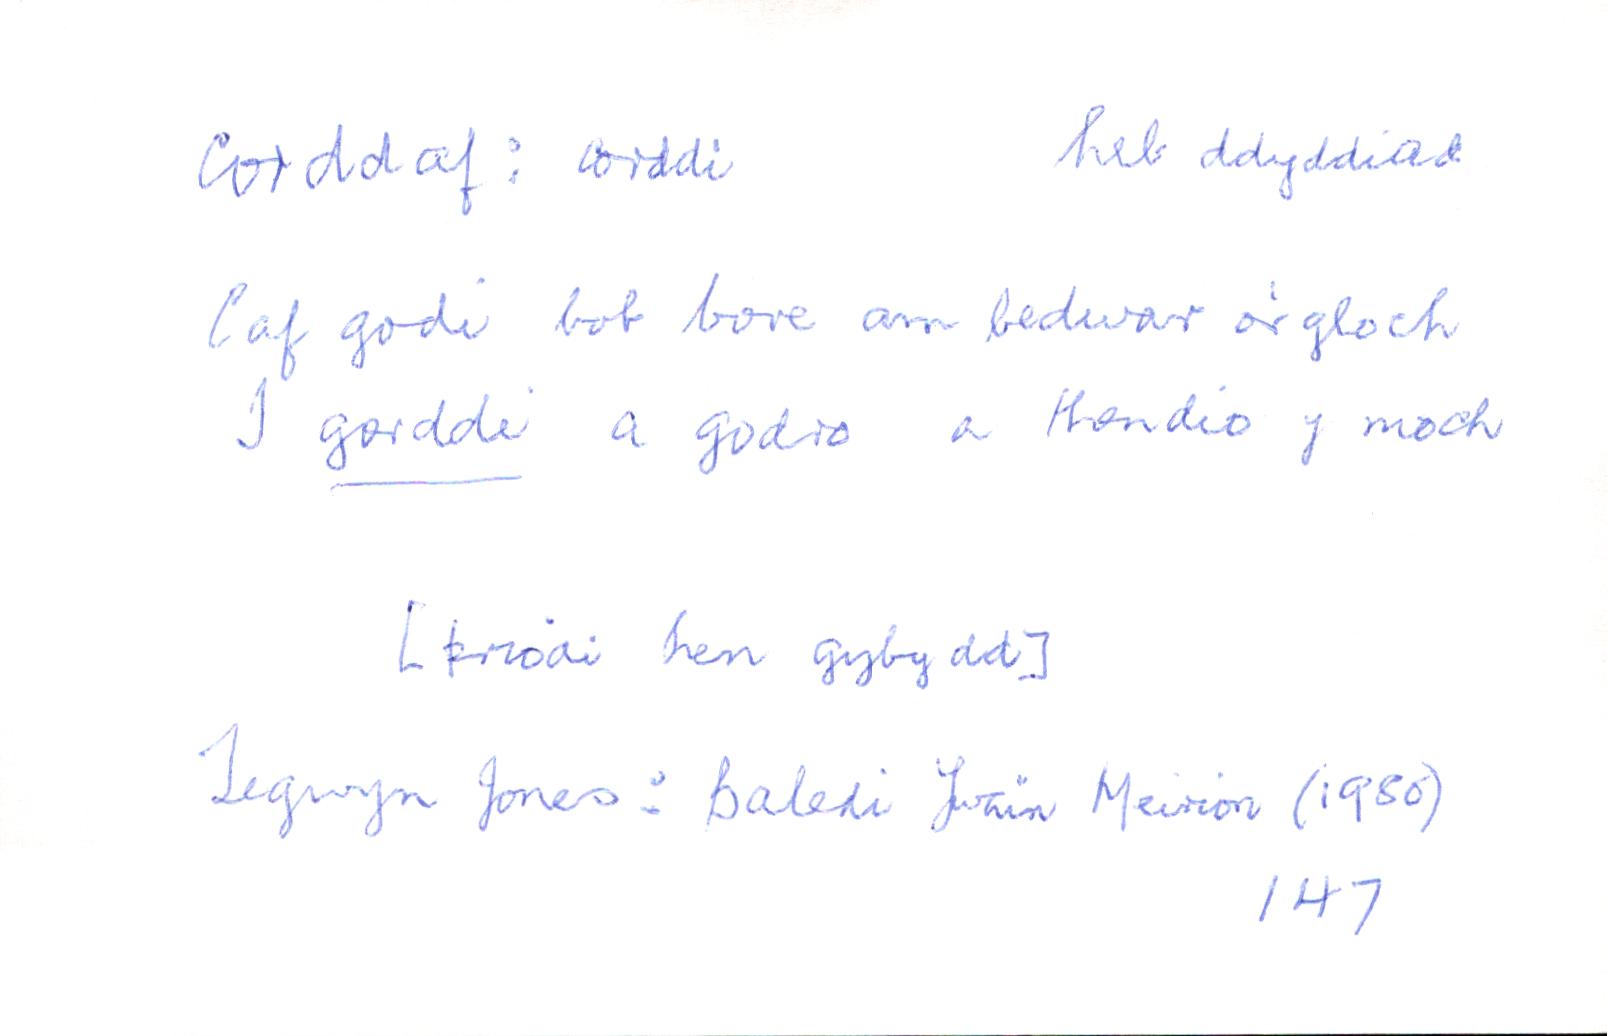 Corddaf: corddi heb ddyddiad
Caf godi bob bore am bedwar o'r gloch
I gorddi a godro a thendio y moch
[priodi hen gybydd]
Tegwyn Jones: Baledi Ywain Meirion (1980)
147